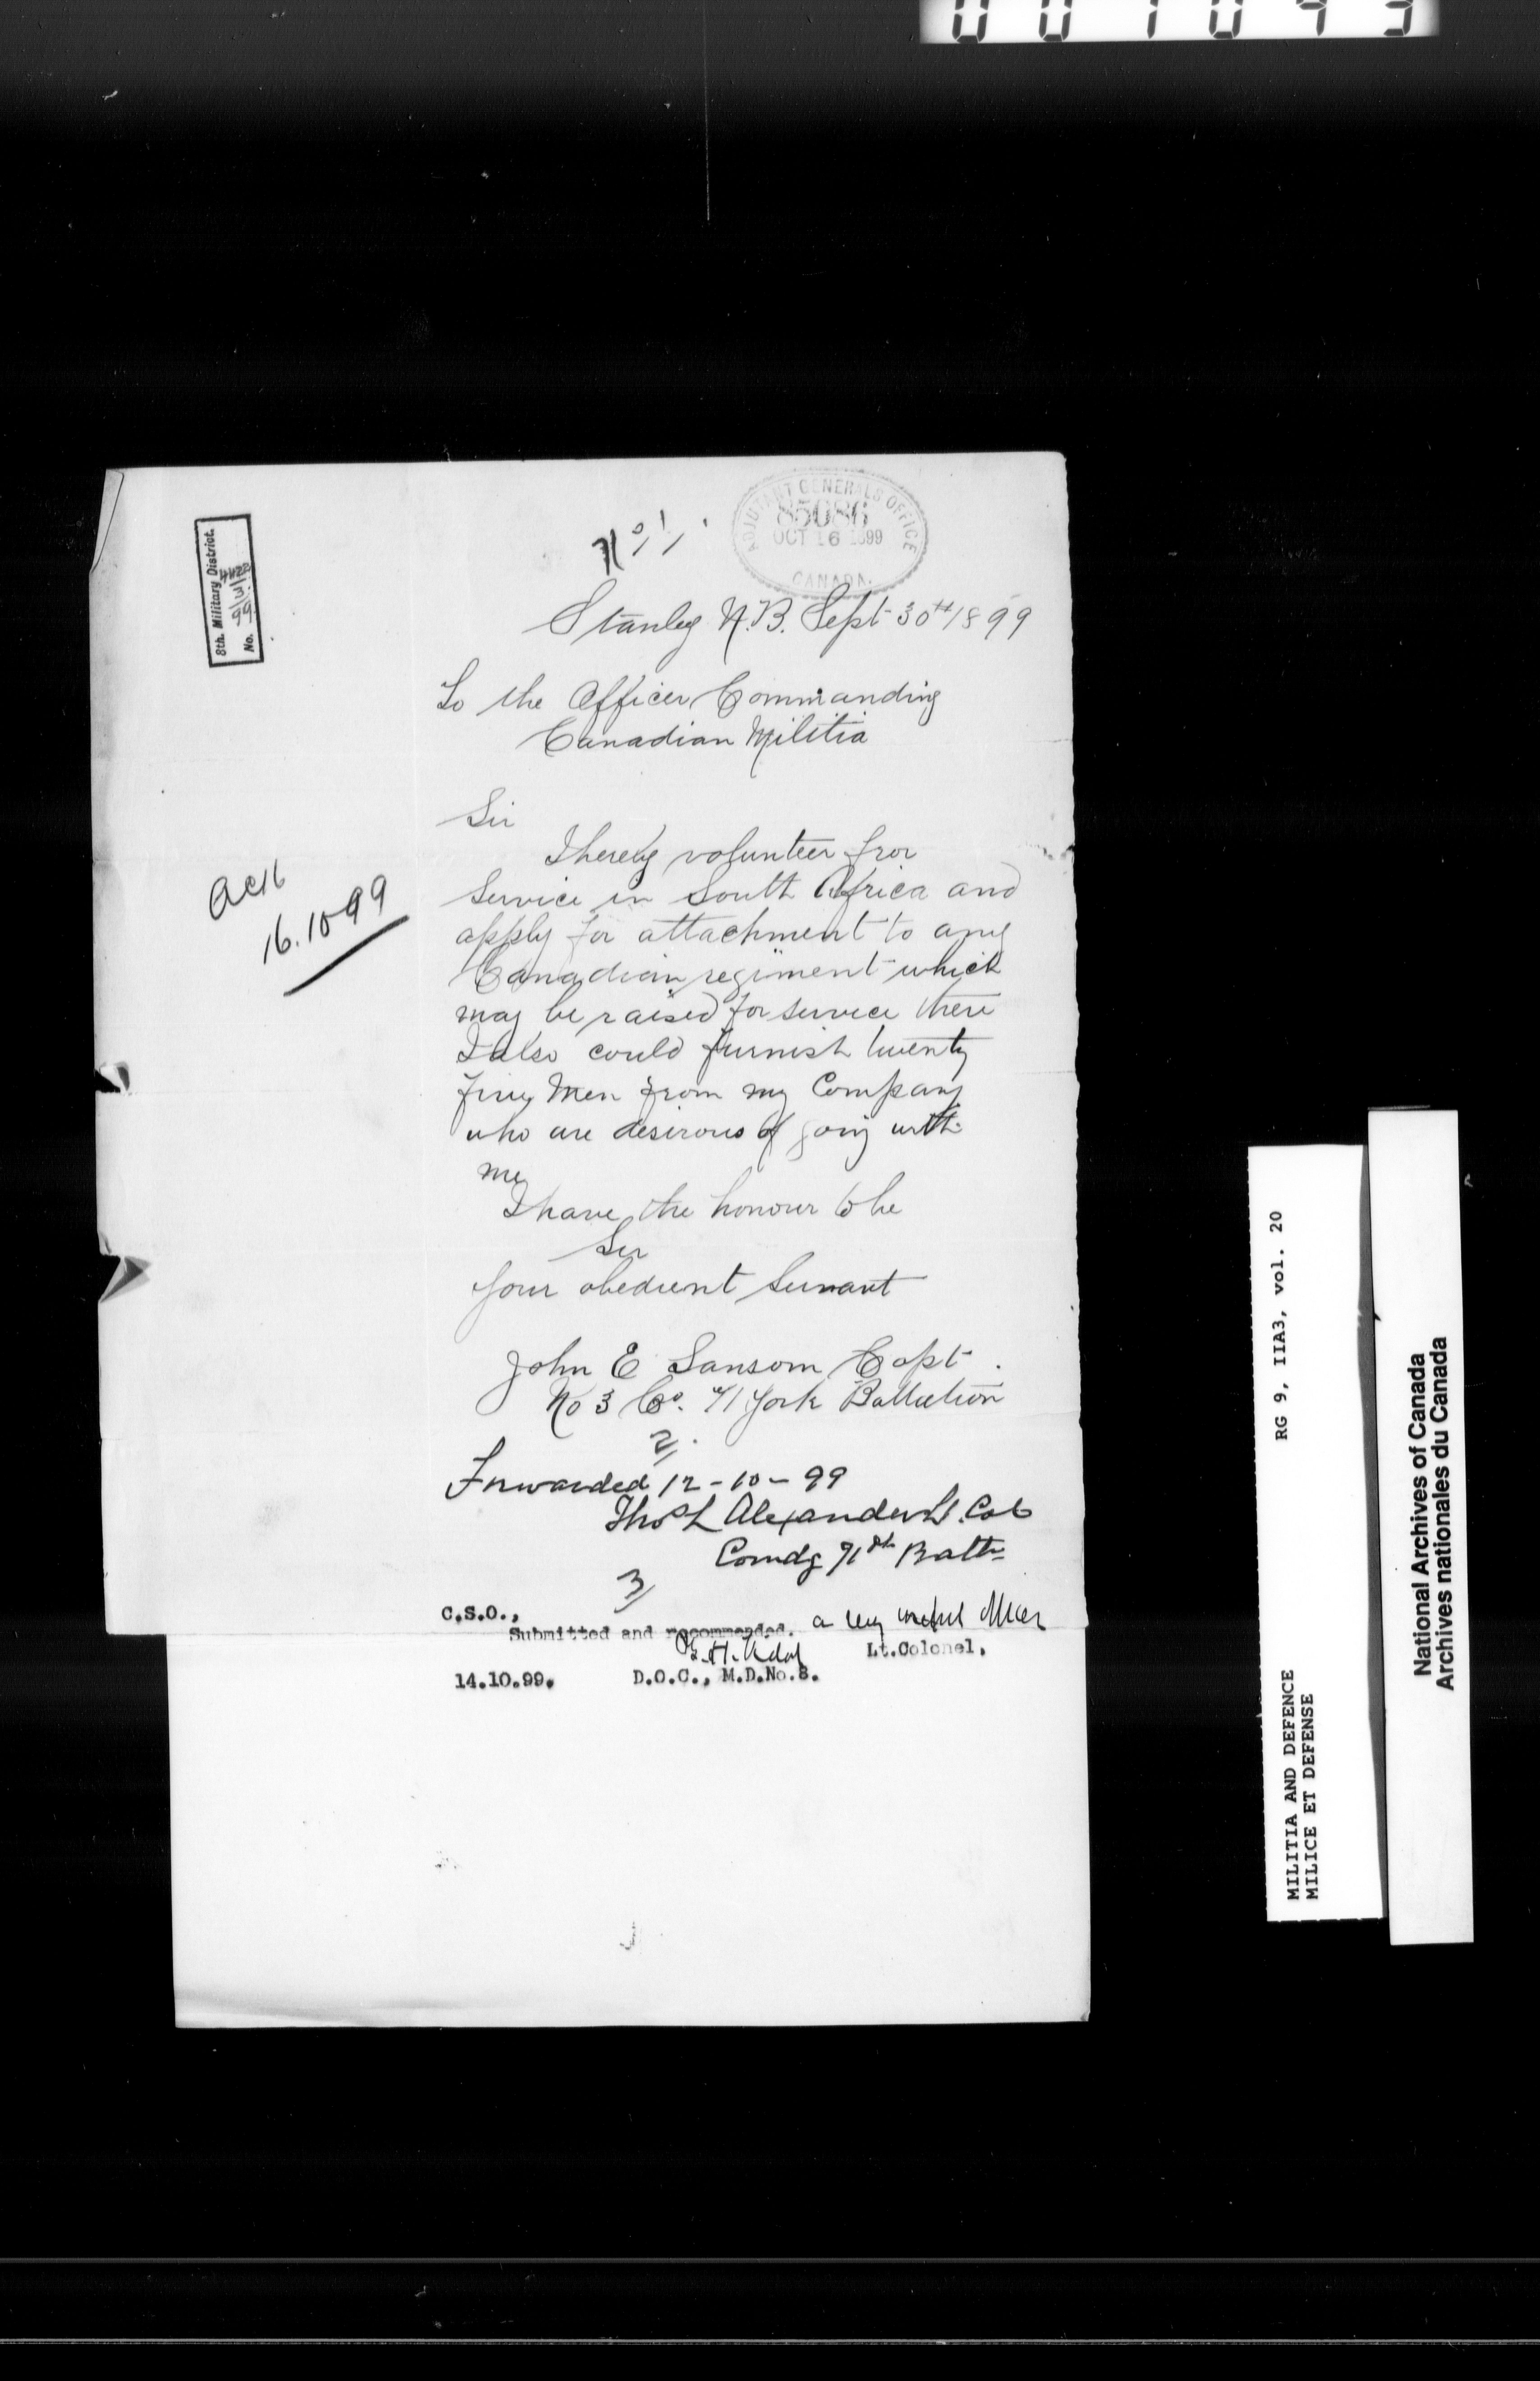 No 1/.
ADJUTANT GENERALS OFFICE
85086
OCT 16 1899
CANADA.
8th. Military District.
No.
Stanley N.B. Sept 30th 1899
To the Officer Commanding
Canadian Militia
Sir
I hereby volunteer fror
Service in South Africa and
apply for attachment to any
Canadian regiment which
may be raised for service there
I also could furnish twenty
five Men from my Company
who are desirous of going with
me
I have the honour to be
Sir
Your obedient Servant
John E Sansom Capt.
No 3 Co. 71 York Battalion
Ack
16.10.99
2/.
Forwarded 12-10-99
Thos L Alexander Lt. Col
Comdg 71st Battn
3/
C.S.O.,
Submitted and recommended. a very useful officer
Lt.Colonel,
14.10.99. D.O.C., M.D.No.8.
MILITIA AND DEFENCE RG 9, IIA3, vol. 20
MILICE ET DEFENSE
National Archives of Canada
Archives nationales du Canada